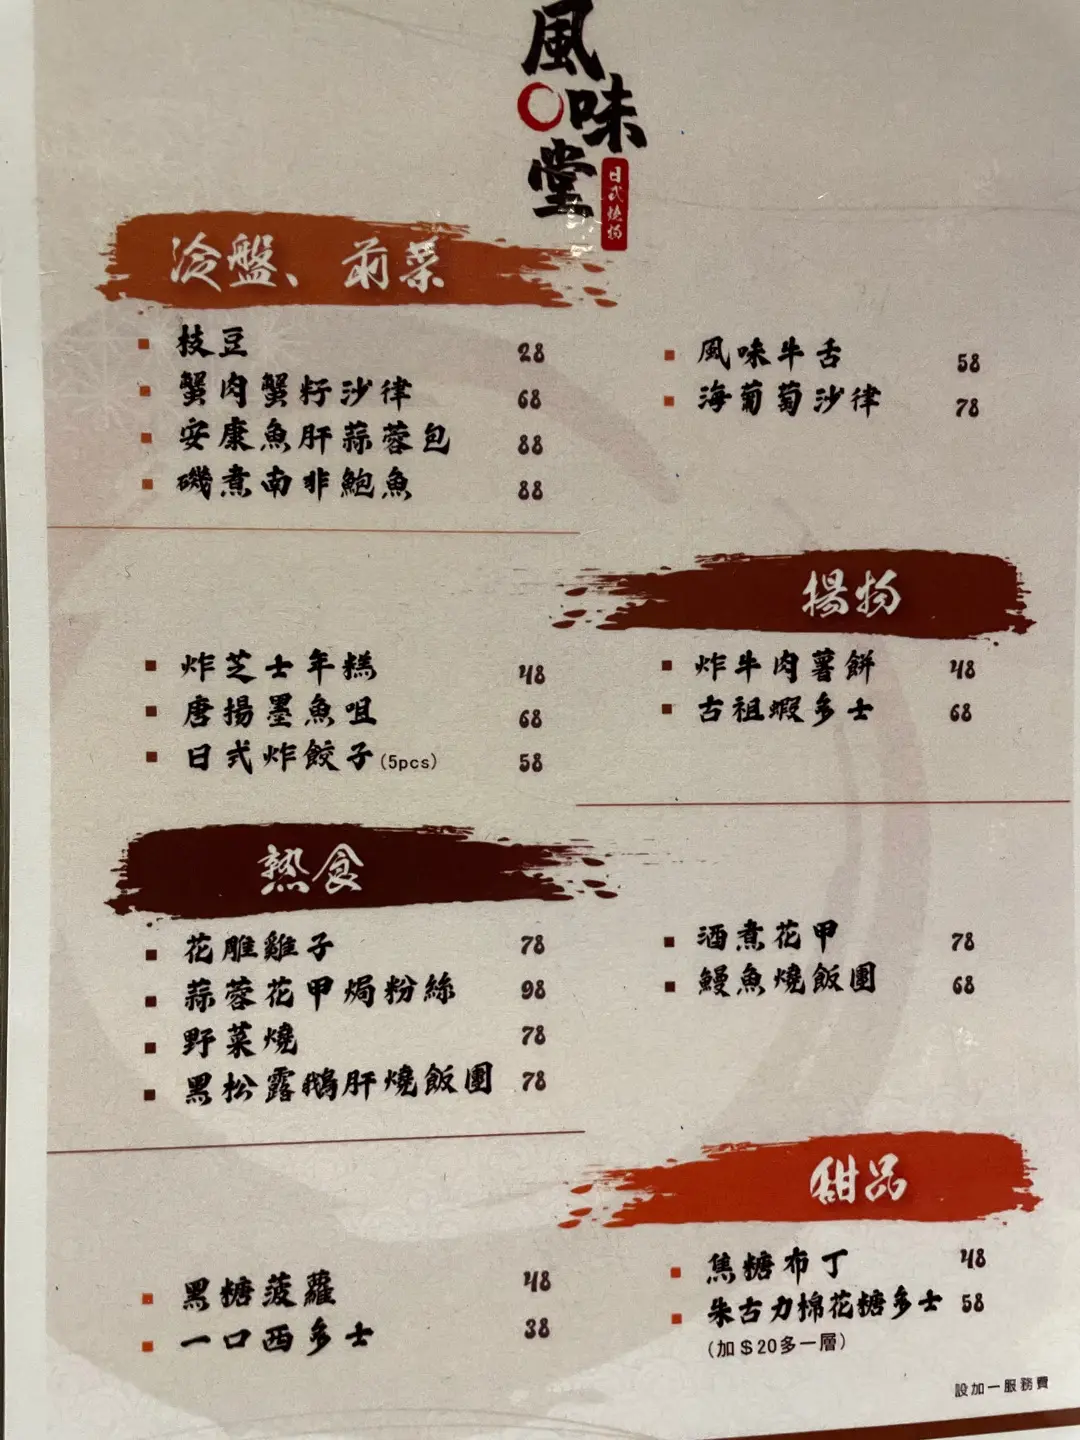 風味堂
日式燒物
冷盤、前菜
枝豆 28
蟹肉蟹籽沙律 68
安康魚肝蒜蓉包 88
磯煮南非鮑魚 88
風味牛舌 58
海葡萄沙律 78
揚物
炸芝士年糕 48
唐揚墨魚咀 68
日式炸餃子(5pcs) 58
炸牛肉薯餅 48
古祖蝦多士 68
熱食
花雕雞子 78
蒜蓉花甲焗粉絲 98
野菜燒 78
黑松露鵝肝燒飯團 78
酒煮花甲 78
鰻魚燒飯團 68
甜品
黑糖菠蘿 48
一口西多士 38
焦糖布丁 48
朱古力棉花糖多士 58
(加$20多一層)
設加一服務費